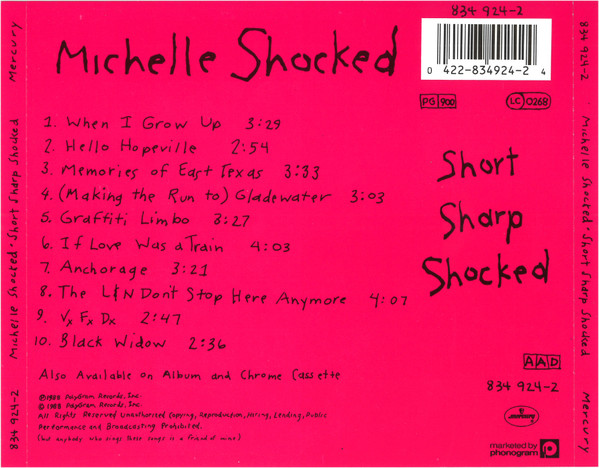 834 924-2
Michelle Shocked
0 422-834924-2 4
PG 900
LC 0268
1. When I Grow Up 3:29
2. Hello Hopeville 2:54
3. Memories of East Texas 3:33
4. (Making the Run to) Gladewater 3:03
5. Graffiti Limbo 3:27
6. If Love Was a Train 4:03
7. Anchorage 3:21
8. The L&N Don't Stop Here Anymore 4:07
9. Vx Fx Dx 2:47
10. Black Widow 2:36
Short
Sharp
Shocked
Also Available on Album and Chrome Cassette
℗1988 PolyGram Records, Inc.
©1988 PolyGram Records, Inc.
All Rights Reserved Unauthorized Copying, Reproduction, Hiring, Lending, Public
Performance and Broadcasting Prohibited.
(but anybody who sings these songs is a friend of mine)
AAD
834 924-2
mercury
marketed by
phonogram
834 924-2 Michelle Shocked · Short Sharp Shocked Mercury
834 924-2 Michelle Shocked · Short Sharp Shocked Mercury